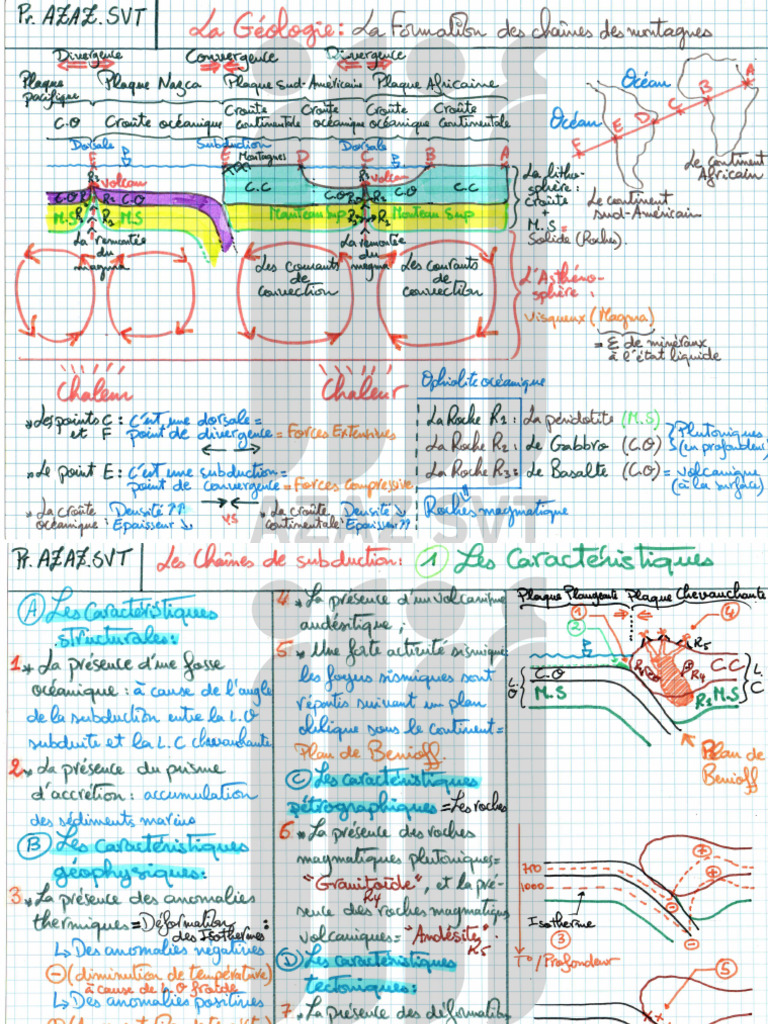 Pr. AZAZ.SVT
La Géologie: La Formation des chaînes des montagnes
Divergence Convergence Divergence
Plaque pacifique
Plaque Nazca
Plaque Sud-Américaine
Plaque Africaine
C.O
Croûte océanique
Croûte continentale
Croûte océanique
Croûte océanique
Croûte continentale
Dorsale Subduction Dorsale
F E D C B A
Montagnes
Volcan
volcan
C.O R3 R2 C.O
C.C C.O R3 C.O C.C
M.S R1 M.S
Manteau Sup R1 Manteau Sup
La remontée du magma
La remontée du magma
Les courants de convection
Les courants de convection
La lithosphère:
croûte
+
M.S =
Solide (Roches).
L'Asthénosphère:
Visqueux (Magma)
= E de minéraux
à l'état liquide
Océan
Océan
F E D C B A
Le continent Africain
Le continent sud-Américain
Chaleur Chaleur
* Les points C et F : C'est une dorsale =
point de divergence = Forces Extensives
* Le point E : C'est une subduction =
point de convergence = Forces compressive
* La croûte océanique : Densité ↑↑ Epaisseur ↓
VS
La croûte continentale : Densité ↓ Epaisseur ↑↑
Ophiolite océanique
La Roche R1 : La péridotite (M.S)
La Roche R2 : Le Gabbro (C.O)
La Roche R3 : Le Basalte (C.O)
Plutoniques
(en profondeur)
= volcanique
(à la surface)
Roches magmatique
AZAZ SVT
Pr. AZAZ.SVT
Les Chaînes de subduction: 1 Les Caractéristiques
A Les Caractéristiques
structurales:
1 * La présence d'une fosse
océanique : à cause de l'angle
de la subduction entre la L.O
subduite et la L.C chevauchante
2 * La présence du prisme
d'accrétion : accumulation
des sédiments marins
B Les caractéristiques
géophysiques:
3 * La présence des anomalies
thermiques = Déformation des Isothermes :
↳ Des anomalies négatives
⊖ (diminution de température)
à cause de L.O froide
↳ Des anomalies positives
4 * La présence d'un volcanisme
andésitique ;
5 * Une forte activité sismique:
les foyers sismiques sont
répartis suivant un plan
oblique sous le continent =
Plan de Benioff.
C Les caractéristiques
pétrographiques = Les roches
6 * La présence des roches
magmatiques plutoniques =
"Granitoïde", et la pré-
R4
sence des roches magmatiques
volcaniques = "Andésite".
R5
D Les caractéristiques
tectoniques:
7 * La présence des déformations
Plaque Plongeante Plaque Chevauchante
1 2 4
R5
C.O
M.S
L.O
C.C
R4
R1 M.S
L.C
Plan de Benioff
750
1000
Isotherme
3
T°/Profondeur
5